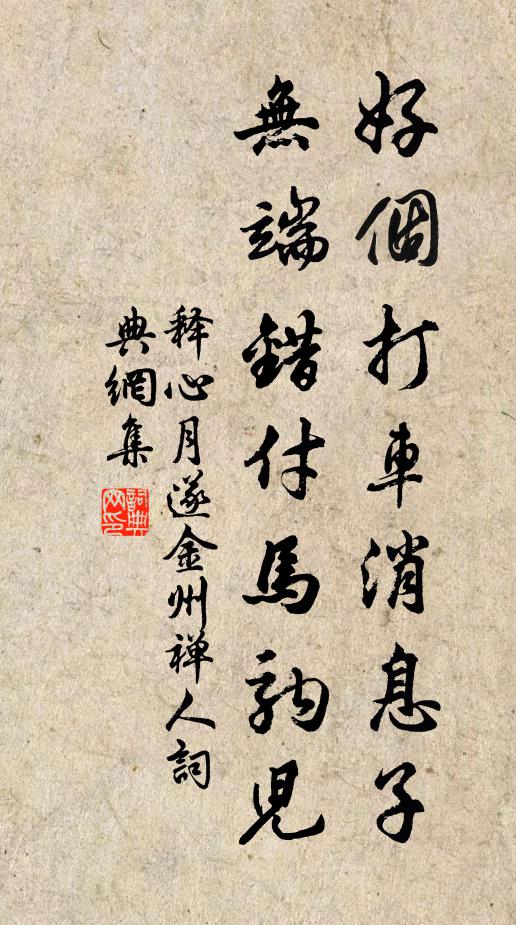 好個打車消息子
無端錯付馬駒兒
釋心月遂金州禅人詞
典網集
詞典网印